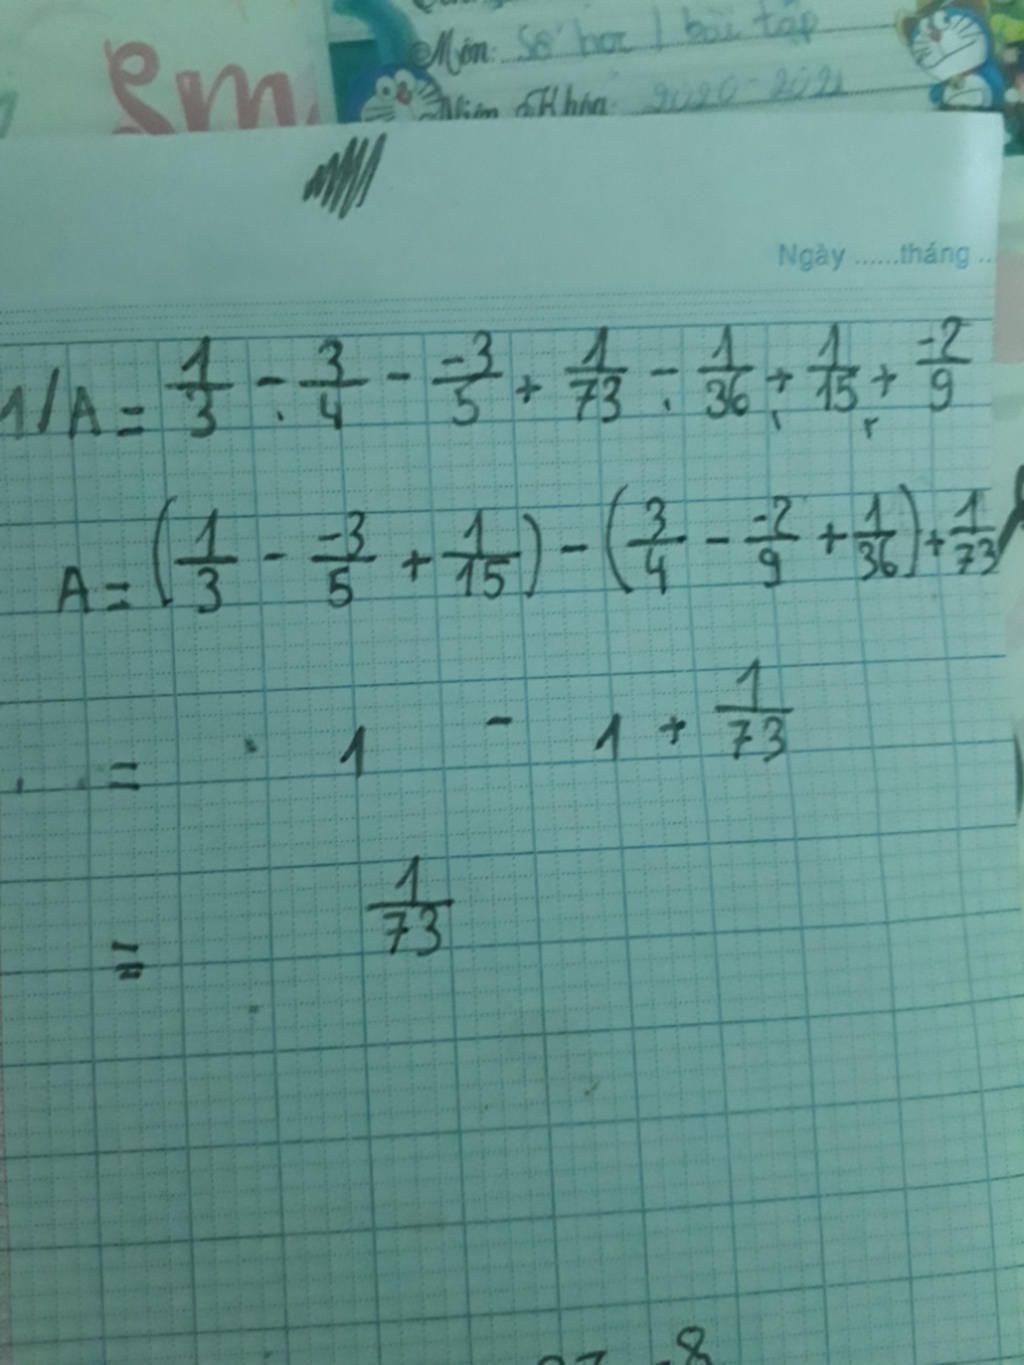 Môn: Số học | bài tập
Niên Khóa: 2020-2021
Em
Ngày ......tháng ..
1/A = 1/3 - 3/4 - -3/5 + 1/73 - 1/36 + 1/15 + -2/9
A = (1/3 - -3/5 + 1/15) - (3/4 - -2/9 + 1/36) + 1/73
= 1 - 1 + 1/73
= 1/73
-8